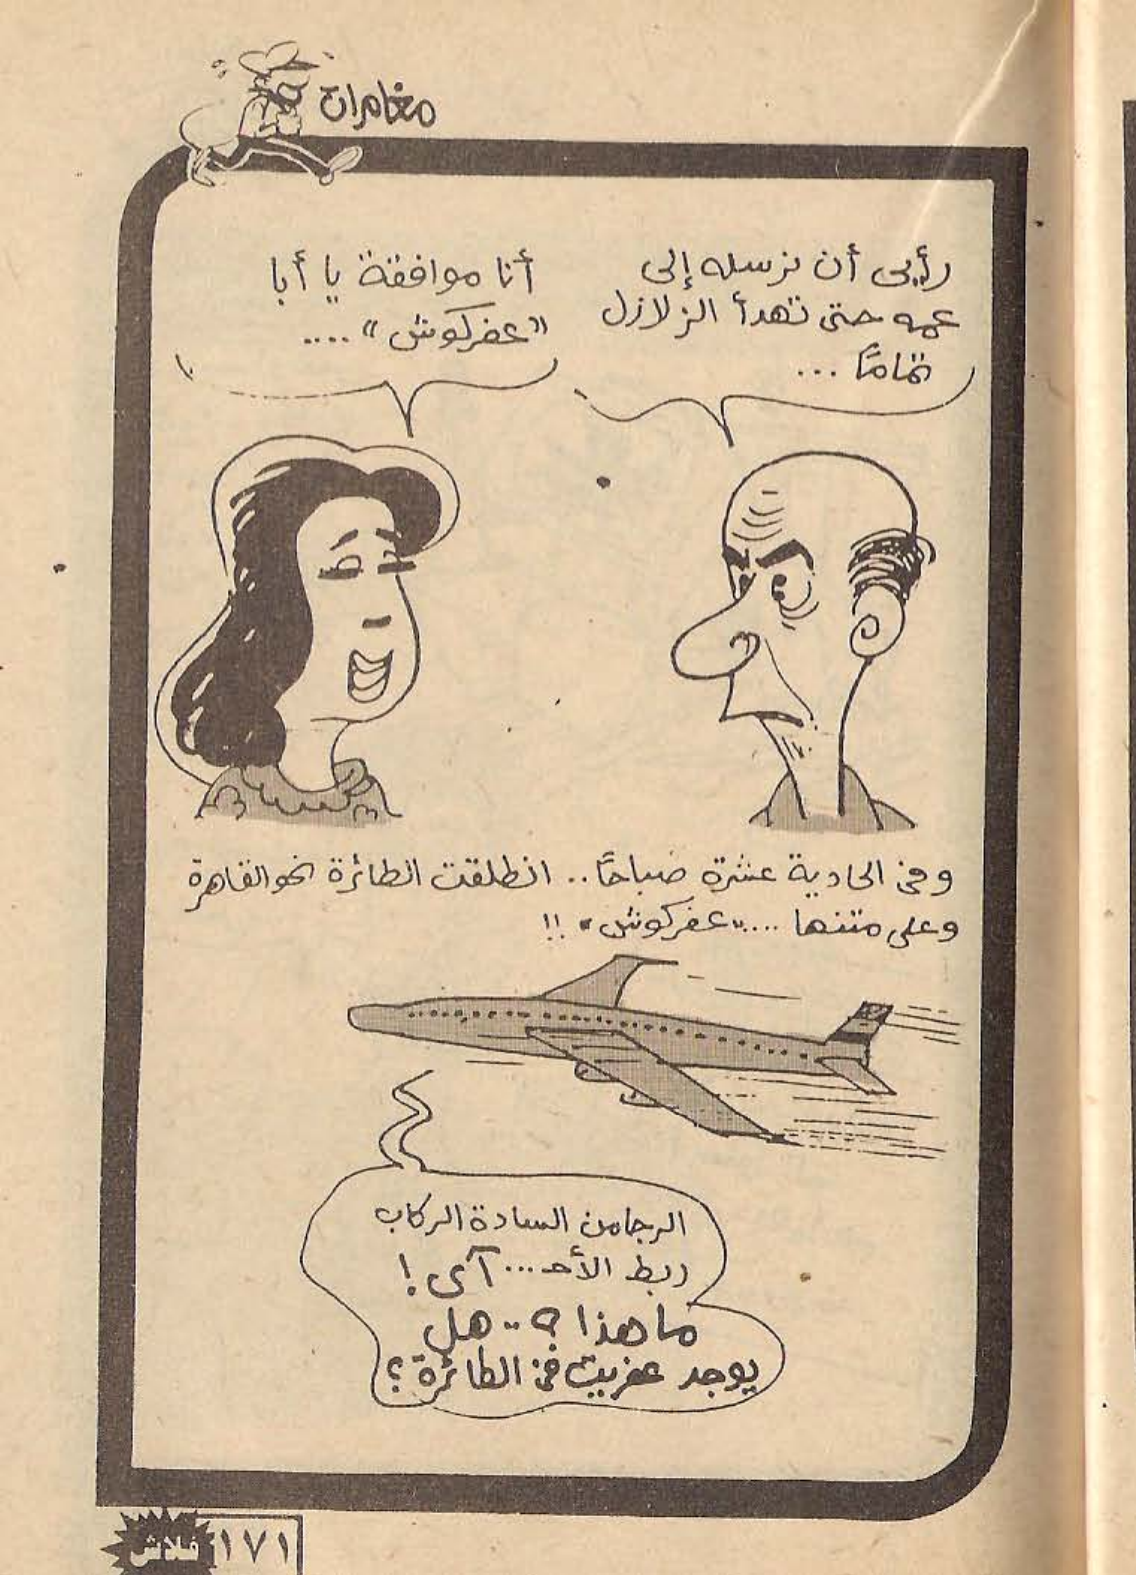 مغامرات
رأيى أن نرسله إلى
عمه حتى تهدأ الزلازل
تمامًا ...
أنا موافقة يا أبا
"عفركوش" ....
وفى الحادية عشرة صباحًا.. انطلقت الطائرة نحو القاهرة
وعلى متنها ...."عفركوش" !!
الرجا من السادة الركاب
ربط الأحـ... آى !
ما هذا ؟ .. هل
يوجد عفريت فى الطائرة ؟
فلاش ١٧١